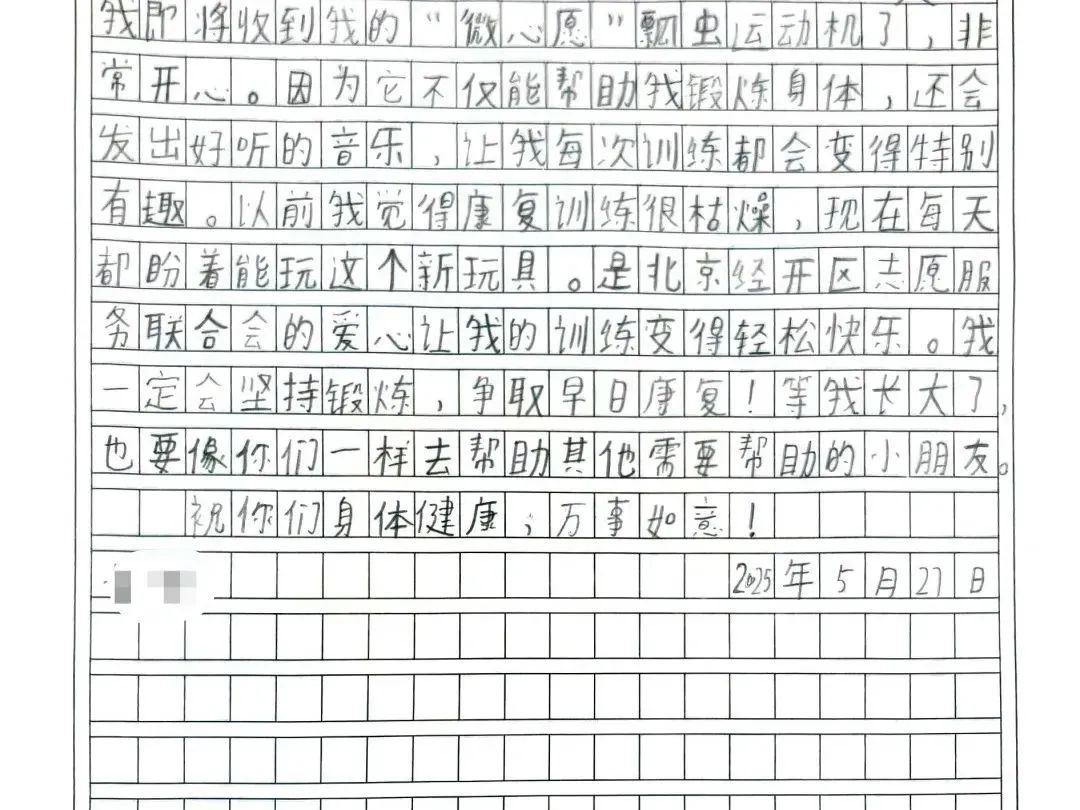 我即将收到我的“微心愿”瓢虫运动机了，非
常开心。因为它不仅能帮助我锻炼身体，还会
发出好听的音乐，让我每次训练都会变得特别
有趣。以前我觉得康复训练很枯燥，现在每天
都盼着能玩这个新玩具。是北京经开区志愿服
务联合会的爱心让我的训练变得轻松快乐。我
一定会坚持锻炼，争取早日康复！等我长大了，
也要像你们一样去帮助其他需要帮助的小朋友。
祝你们身体健康，万事如意！
2025年5月27日